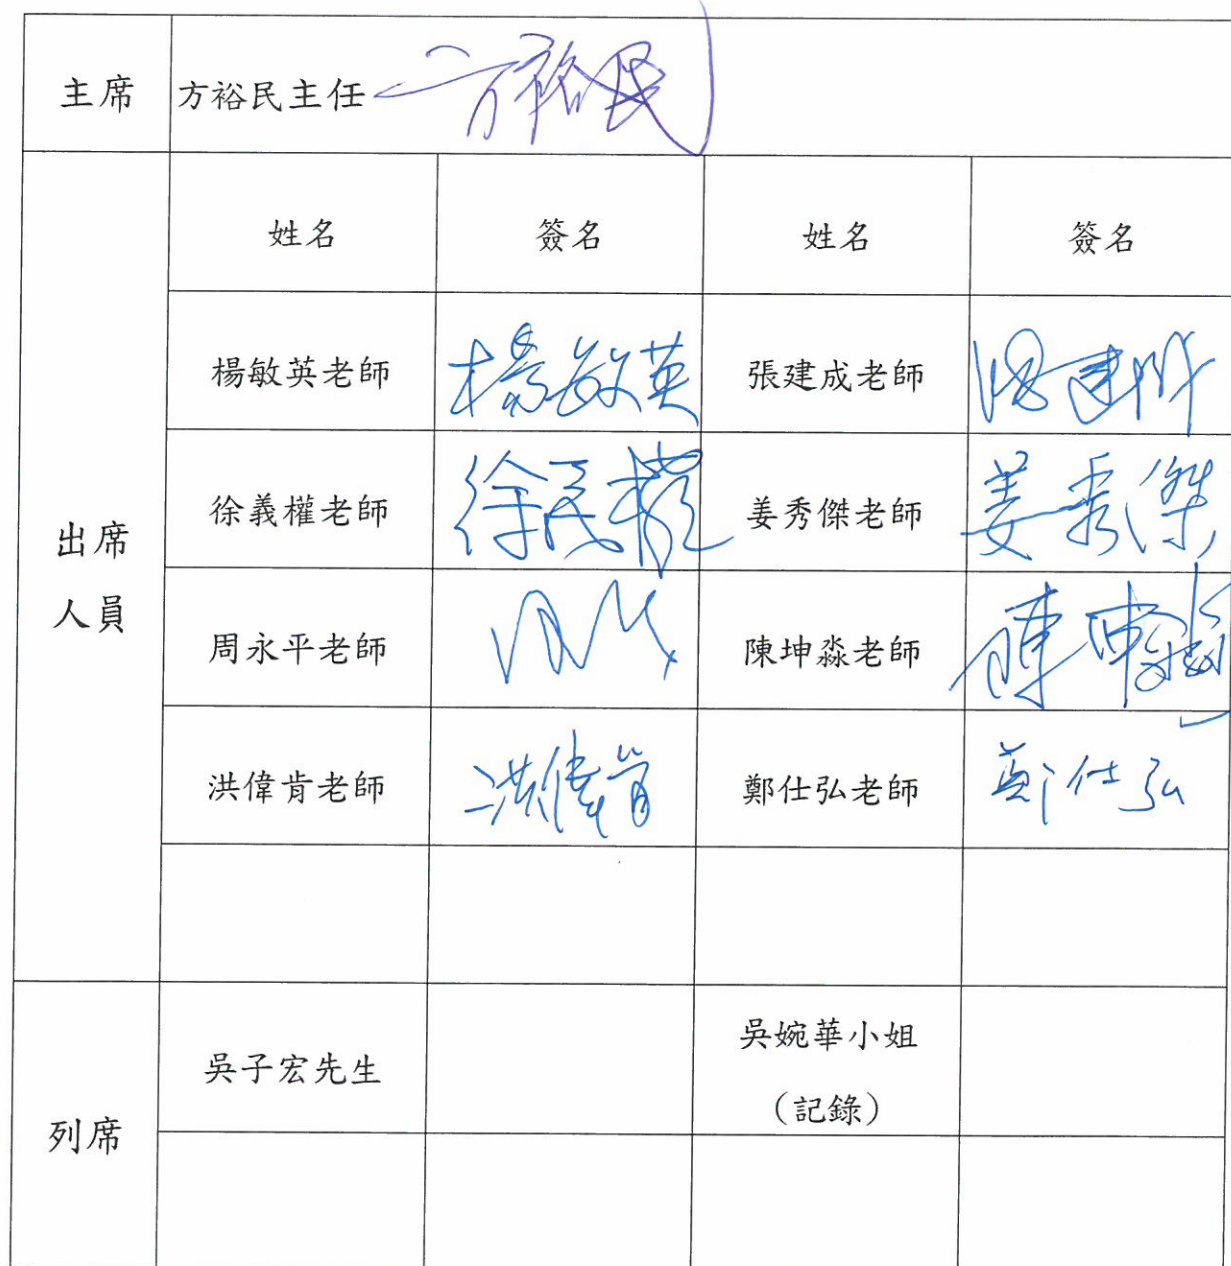 主席 方裕民主任 方裕民
姓名 簽名 姓名 簽名
楊敏英老師 楊敏英 張建成老師
徐義權老師 徐義權 姜秀傑老師 姜秀傑
出席
人員
周永平老師 陳坤淼老師
洪偉肯老師 洪偉肯 鄭仕弘老師 鄭仕弘
吳子宏先生 吳婉華小姐
(記錄)
列席